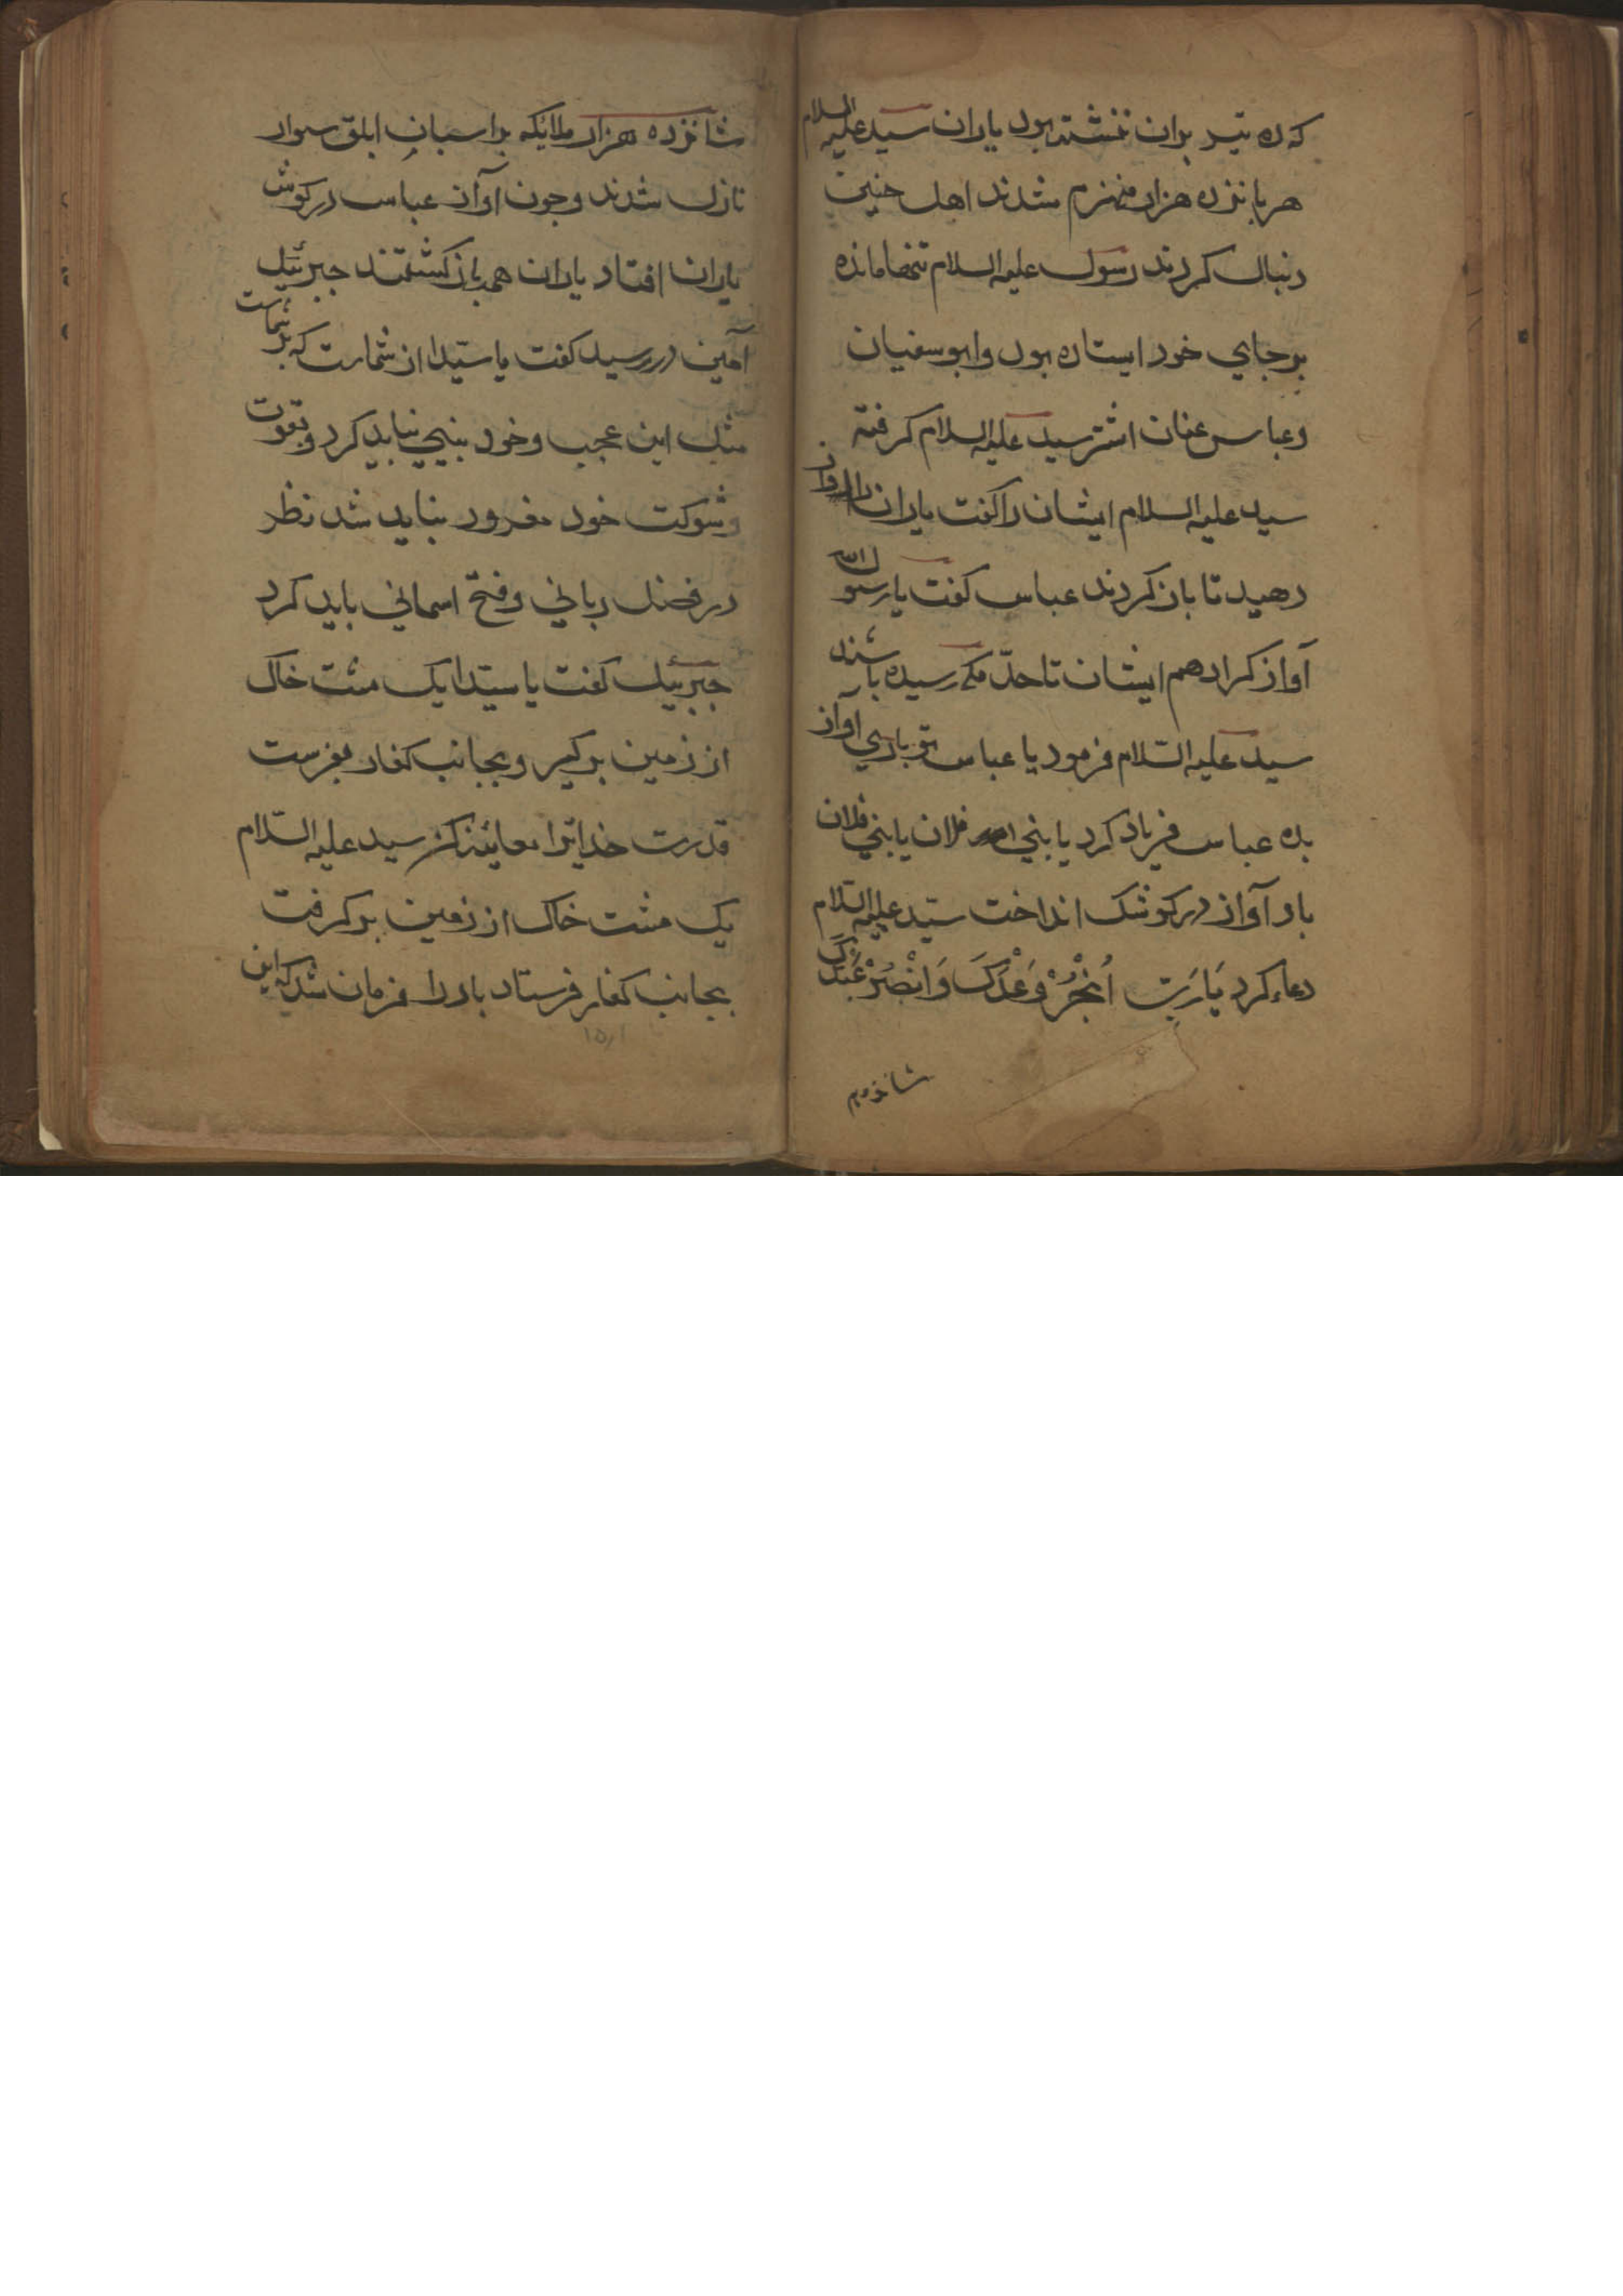 که ده تیر بران ننشته بود یاران سید علیه السلام
هر پانزده هزار منهزم شدند اهل حنین
دنبال کردند رسول علیه السلام تنها مانده
بر جای خود ایستاده بود و ابوسفیان
و عباس عنان اشتر سید علیه السلام کرفته
سید علیه السلام ایشان را کفت یاران را اواز
دهید تا باز کردند عباس کفت یا رسول الله
آواز کرا دهم ایشان تا حدّ مکه رسیده باشند
سید علیه السّلام فرمود یا عباس تو باری آواز
بده عباس فریاد کرد یا بنی فلان یا بنی فلان
باد آواز در کوشک انداخت سیّد علیه السّلام
دعاء کرد یَا رَبِّ اَنْجِزْ وَعْدَکَ وَانْصُرْ عَبْدَکَ
شانزدهم
شانزده هزار ملایکه بر اسبان ابلق سوار
نازل شدند و جون آواز عباس در کوش
یاران افتاد یاران همه باز کشتند جبرئیل
آمین در رسید کفت یا سیّدا از شمارت که بر شماست
مثل این عجب و خود بینی نباید کرد و بقوت
و شوکت خود مغرور نباید شد نظر
در فضل ربانی و فتح اسمانی باید کرد
جبرئیل کفت یا سیّدا یک مشت خاک
از زمین بر کیر و بجانب کفار بفرست
قدرت خدایرا معاینه کن سید علیه السّلام
یک مشت خاک از زمین بر کرفت
بجانب کفار فرستاد باد را فرمان شد که این